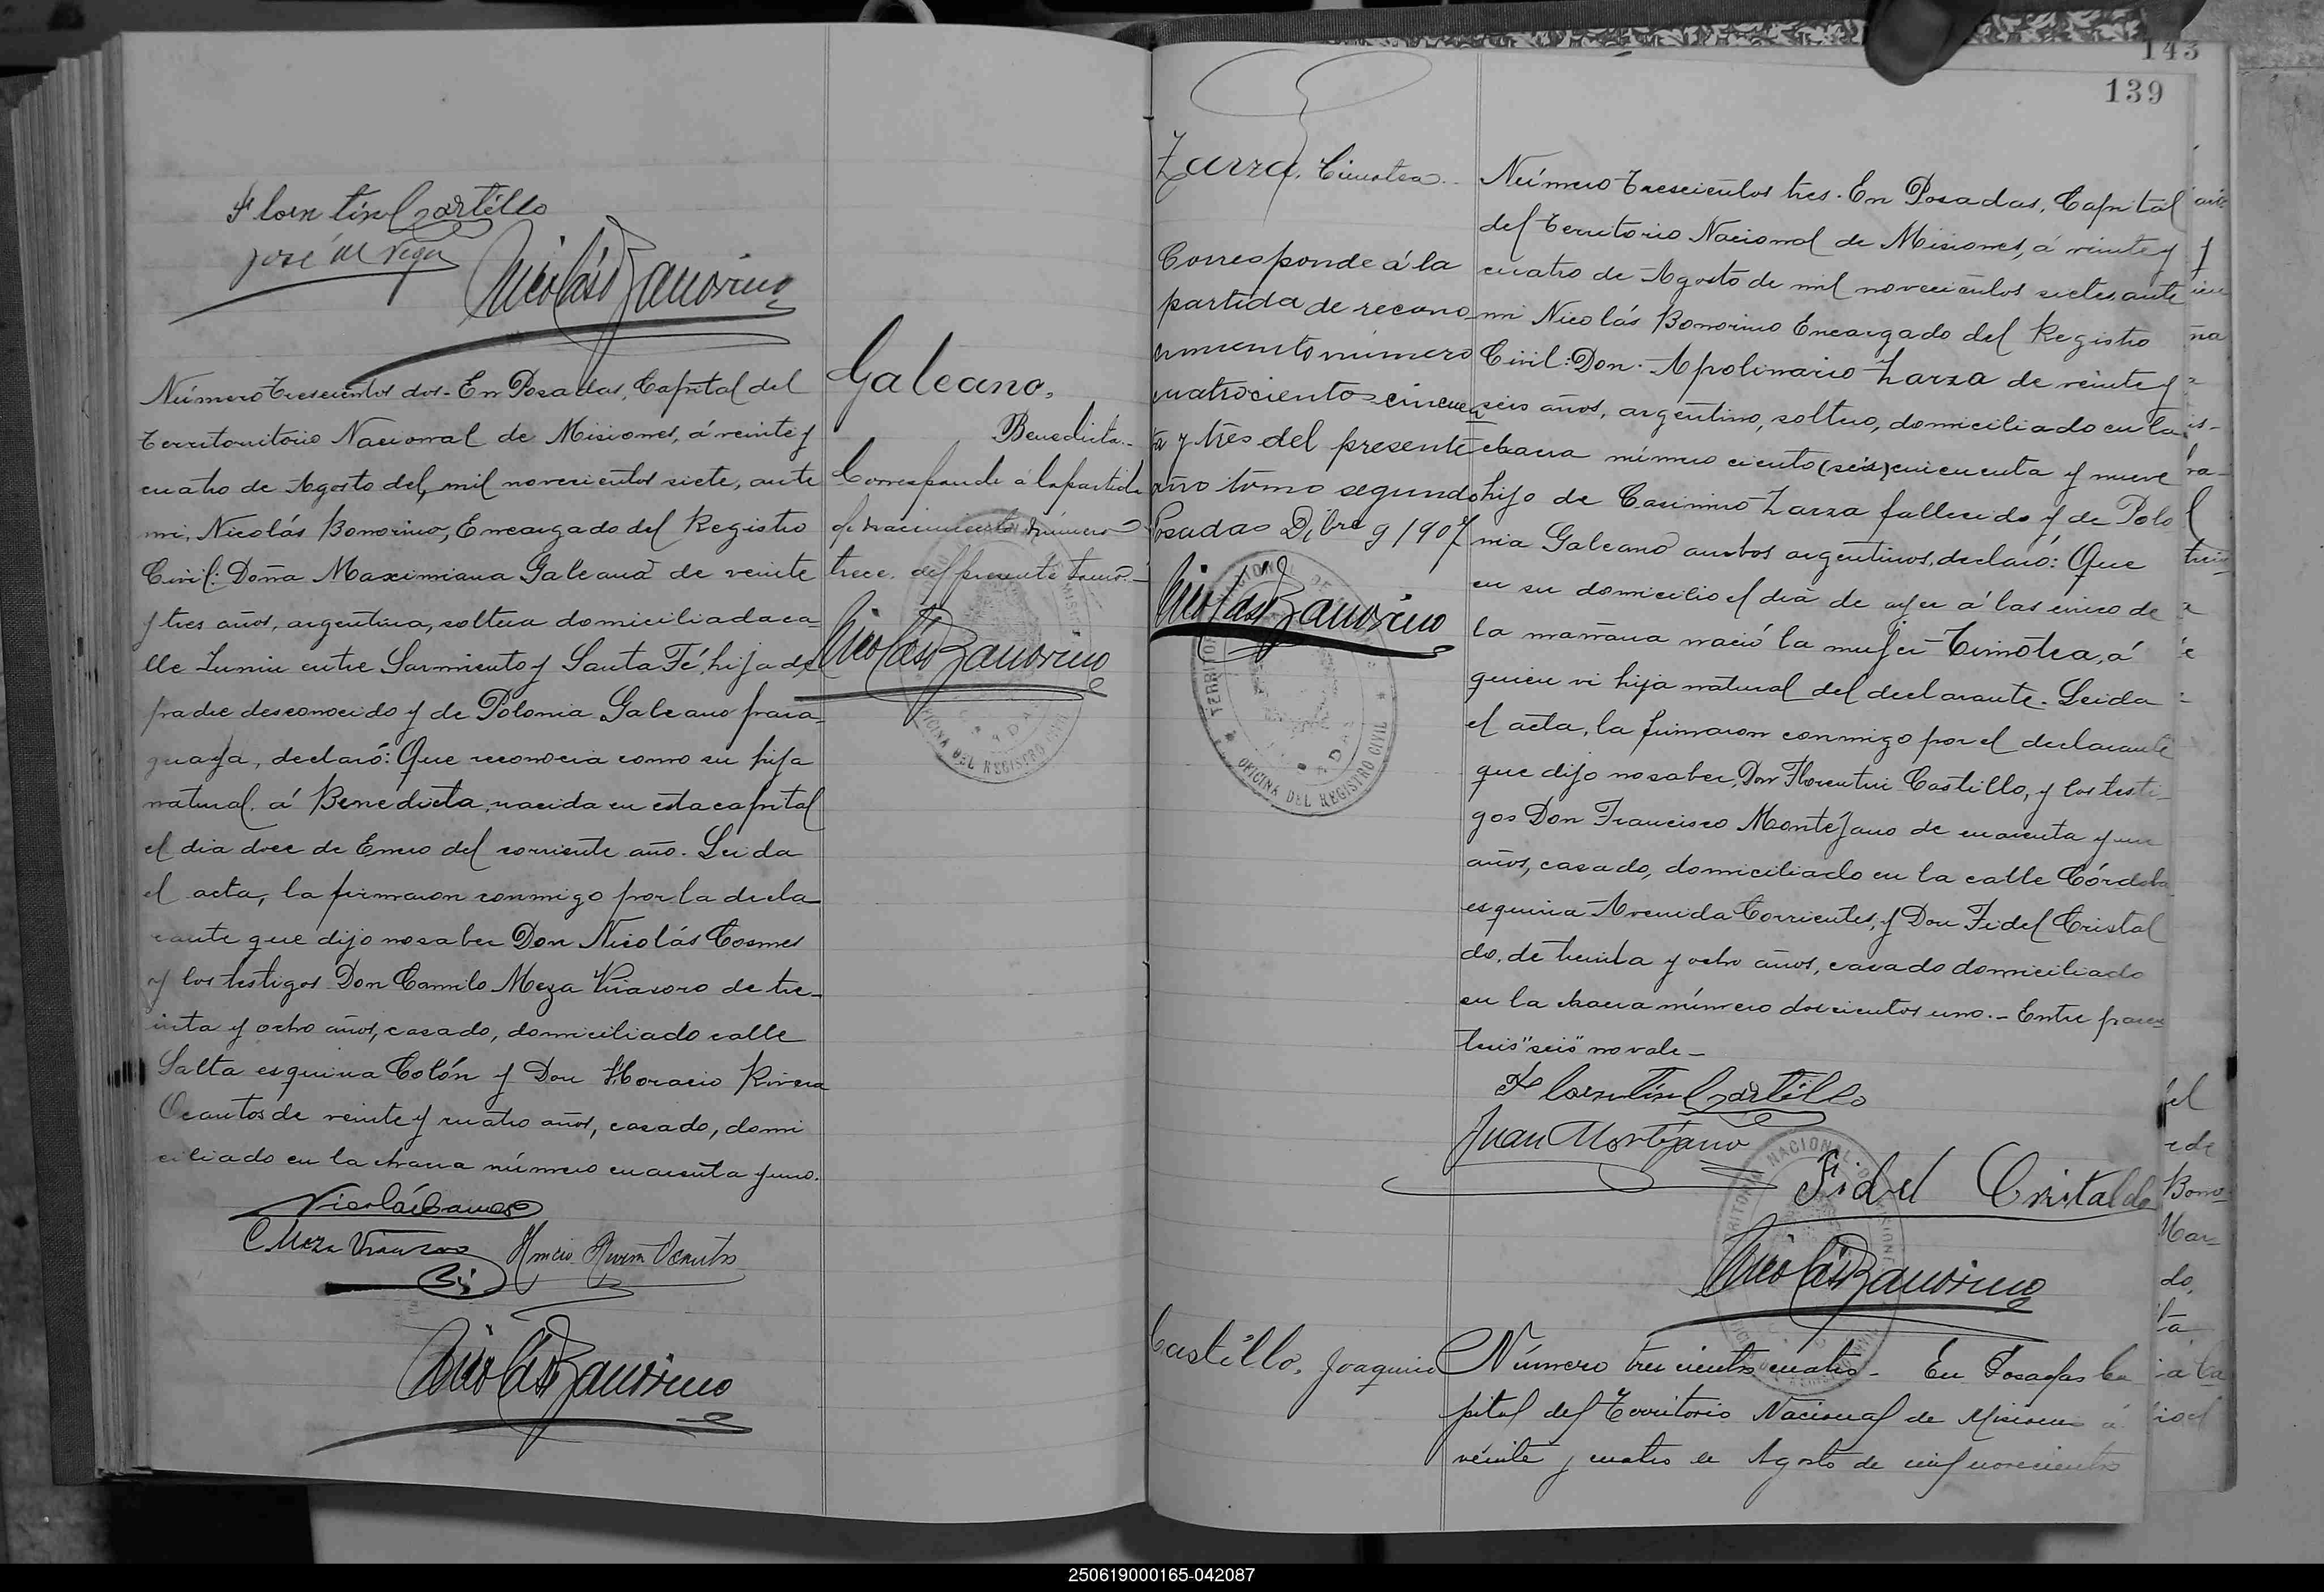 Florentin Castillo
José M Vega
Nicolás Bonorino
Número trescientos dos. En Posadas, Capital del
territouritorio Nacional de Misiones, á veinte y
cuatro de Agosto del mil novecientos siete, ante
mi, Nicolás Bonorino, Encargado del Registro
Civil: Doña Maximiana Galeana de veinte
y tres años, argentina, soltera domiciliada ca-
lle Junin entre Sarmiento y Santa Fé, hija de
padre desconocido y de Polonia Galeano para-
guaya, declaró: Que reconocia como su hija
natural á Benedicta, nacida en esta capital
el dia doce de Enero del corriente año. Leida
el acta, la firmaron conmigo por la decla-
rante que dijo no saber Don Nicolás Cosmes
y los testigos Don Camilo Meza Virasoro de tre-
inta y ocho años, casado, domiciliado calle
Salta esquina Colón y Don Horacio Rivera
Ocantos de veinte y cuatro años, casado, domi
ciliado en la chacra número cuarenta y uno.
C Meza Virasoro
Horacio Rivera Ocantos
Nicolás Bonorino
Galeano,
Benedicta.-
Corresponde á la partida
de nacimiento número
trece del presente tomo.-
Nicolás Bonorino
OFICINA DEL REGISTRO CIVIL
143
139
Zarza, Timotea.
Corresponde á la
partida de recono-
cimiento número
cuatrociento cincuen
ta y tres del presente
año tomo segundo
Posadas Dibre 9 1907
Nicolás Bonorino
TERRITORIO NACIONAL DE MISIONES
OFICINA DEL REGISTRO CIVIL
POSADAS
Número trescientos tres. En Posadas, Capital
del territorio Nacional de Misiones, á veinte y
cuatro de Agosto de mil novecientos siete, ante
mi Nicolás Bonorino Encargado del Registro
Civil: Don Apolinario Zarza de veinte y
seis años, argentino, soltero, domiciliado en la
chacra número ciento (seis) cincuenta y nueve
hijo de Casimiro Zarza fallecido y de Polo
nia Galeano ambos argentinos, declaró: Que
en su domicilio el dia de ayer á las cinco de
la mañana nació la mujer Timotea, á
quien vi hija natural del declarante. Leida
el acta, la firmaron conmigo por el declarante
que dijo no saber, Don Florentin Castillo, y los testi-
gos Don Francisco Montejano de cuarenta y un
años, casado, domiciliado en la calle Córdoba
esquina Avenida Corrientes, y Don Fidel Cristal
do, de treinta y ocho años, casado domiciliado
en la chacra número doscientos uno.- Entre paren
tesis "seis" no vale-
Florentin Castillo
Juan Montejano
Fidel Cristaldo
Nicolás Bonorino
Castillo, Joaquin
Número trescientos cuatro- En Posadas Ca
pital del Territorio Nacional de Misiones á
veinte y cuatro de Agosto de mil novecientos
250619000165-042087